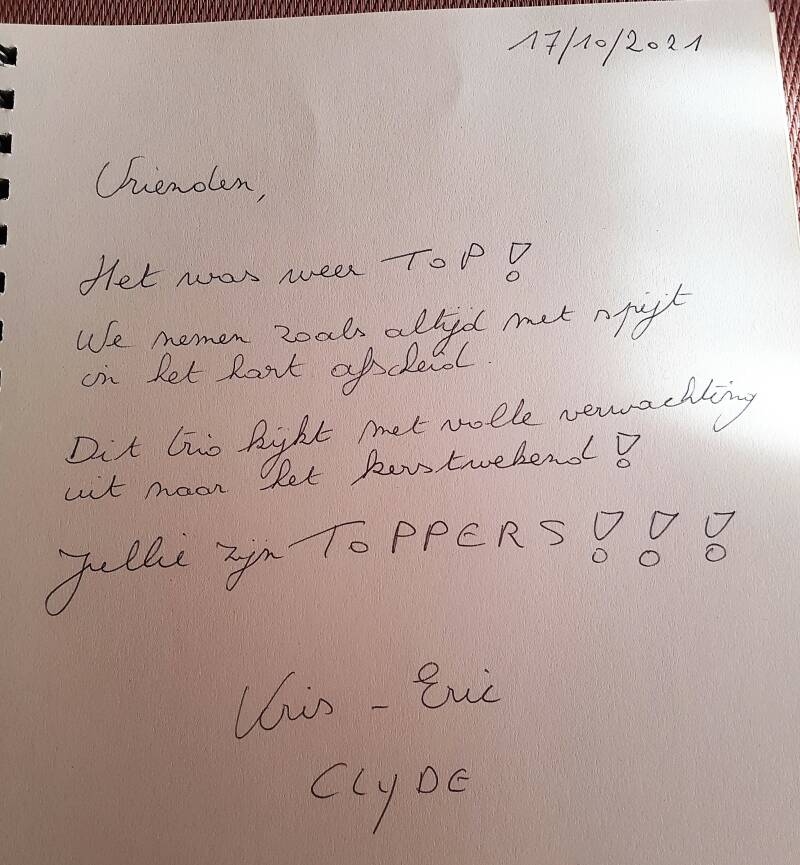 17/10/2021
Vrienden,
Het was weer TOP!
We nemen zoals altijd met spijt
in het hart afscheid.
Dit trio kijkt met volle verwachting
uit naar het kerstwekend!
Jullie zijn TOPPERS!!!
Kris - Eric
CLYDE